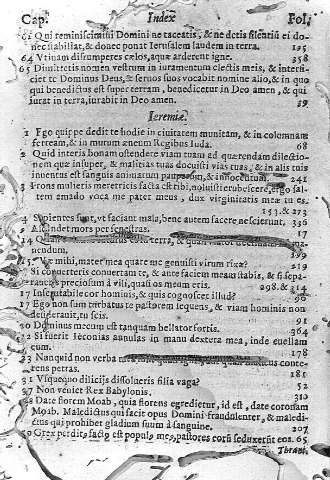 Cap. Index Fol.
61 Qui reminiscimini Domini ne taceatis, & ne detis silentiū ei do-
nec stabiliat, & donec ponat Ierusalem laudem in terra. 195
64 Vtinam disrumperes cælos, aquæ arderent igne. 358
65 Dimittetis nomen vestrum in iuramentum electis meis, & interfi-
ciet te Dominus Deus, & seruos suos vocabit nomine alio, & in quo
qui benedictus est super terram, benedicetur in Deo amen, & qui
iurat in terra, iurabit in Deo amen. 59
Ieremiæ.
1 Ego quippe dedi te hodie in ciuitatem munitam, & in columnam
ferream, & in murum æneum Regibus Iuda. 68
2 Quid interis bonam ostendere viam tuam ad quærendam dilectio-
nem quæ insuper, & malitias tuas docuisti vias tuas, & in alis tuis
inuentus est sanguis animarum pauperum, & innocentum. 241
3 Frons mulieris meretricis facta est tibi, noluisti erubescere, ergo sal-
tem amado voca me pater meus, dux virginitatis meæ tu es.
153. & 273
4 Sapientes sunt, vt faciant mala, bene autem facere nescierunt. 336
9 Ascendet mors per fenestras. 17
14 terra, &
nendum. 399
15 Væ mihi, mater mea quare me genuisti virum rixæ? 219
Si conuerteris conuertam te, & ante faciem meam stabis, & si sepa-
raueris preciosum à vili, quasi os meum eris. 298. & 314
17 Inscrutabile cor hominis, & quis cognoscet illud? 96
17 Ego non sum turbatus te pastorem sequens, & viam hominis non
desideraui, tu scis. 91
20 Dominus mecum est tanquam bellator fortis. 364
22 Si fuerit Ieconias annulus in manu dextera mea, inde euellam
eum. 178
23 Nunquid non verba conte-
rens petras. 181
31 Vsquequo dilicijs dissolueris filia vaga? 52
37 Non veniet Rex Babylonis. 310
48 Date florem Moab, quia florens egredietur, id est, date coronam
Moab. Maledictus qui facit opus Domini fraudulenter, & maledi-
ctus qui prohibet gladium suum à sanguine. 207
50 Grex perditus factus est populus meus, pastores eorū seduxerūt eos. 65
Thrani.